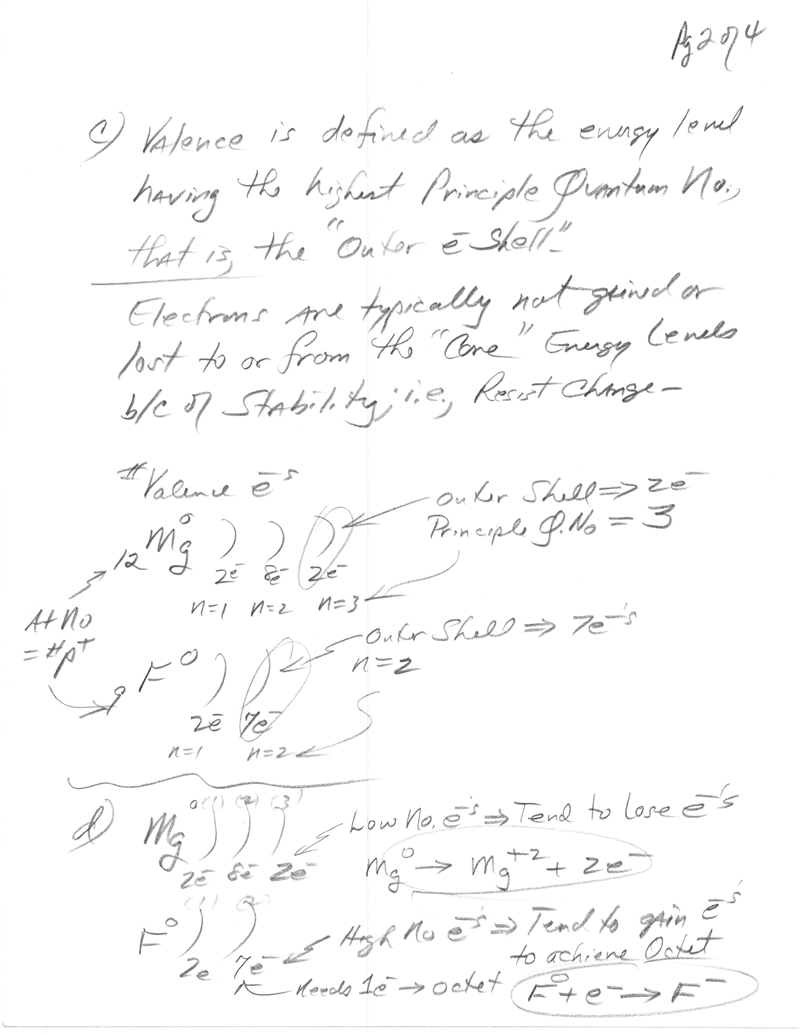 Pg 2 of 4
c) Valence is defined as the energy level
having the highest Principle Quantum No.,
that is, the "Outer e⁻ Shell".
Electrons are typically not gained or
lost to or from the "Core" Energy Levels
b/c of Stability; i.e., Resist Change –
#Valence e⁻'s
Outer Shell ⇒ 2e⁻
Principle Q.No = 3
₁₂Mg⁰ ) ) )
2e⁻ 8e⁻ 2e⁻
n=1 n=2 n=3
At No
= #p⁺
Outer Shell ⇒ 7e⁻'s
n=2
₉F⁰ ) )
2e⁻ 7e⁻
n=1 n=2
d) Mg⁰ (1) (2) (3)
2e⁻ 8e⁻ 2e⁻
Low No. e⁻'s ⇒ Tend to Lose e⁻'s
Mg⁰ → Mg⁺² + 2e⁻
F⁰ (1) (2)
2e 7e⁻
High No e⁻'s ⇒ Tend to gain e⁻'s
to achieve Octet
needs 1e⁻ → octet
F⁰ + e⁻ → F⁻